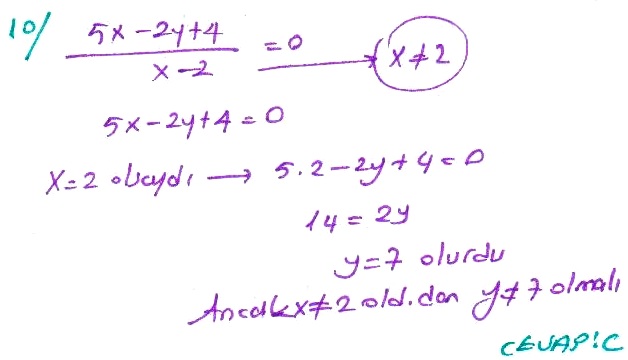 10/ (5x-2y+4)/(x-2) =0 → x≠2
5x-2y+4=0
x=2 olsaydı → 5.2-2y+4=0
14=2y
y=7 olurdu
Ancak x≠2 old.dan y≠7 olmalı
CEVAP:C